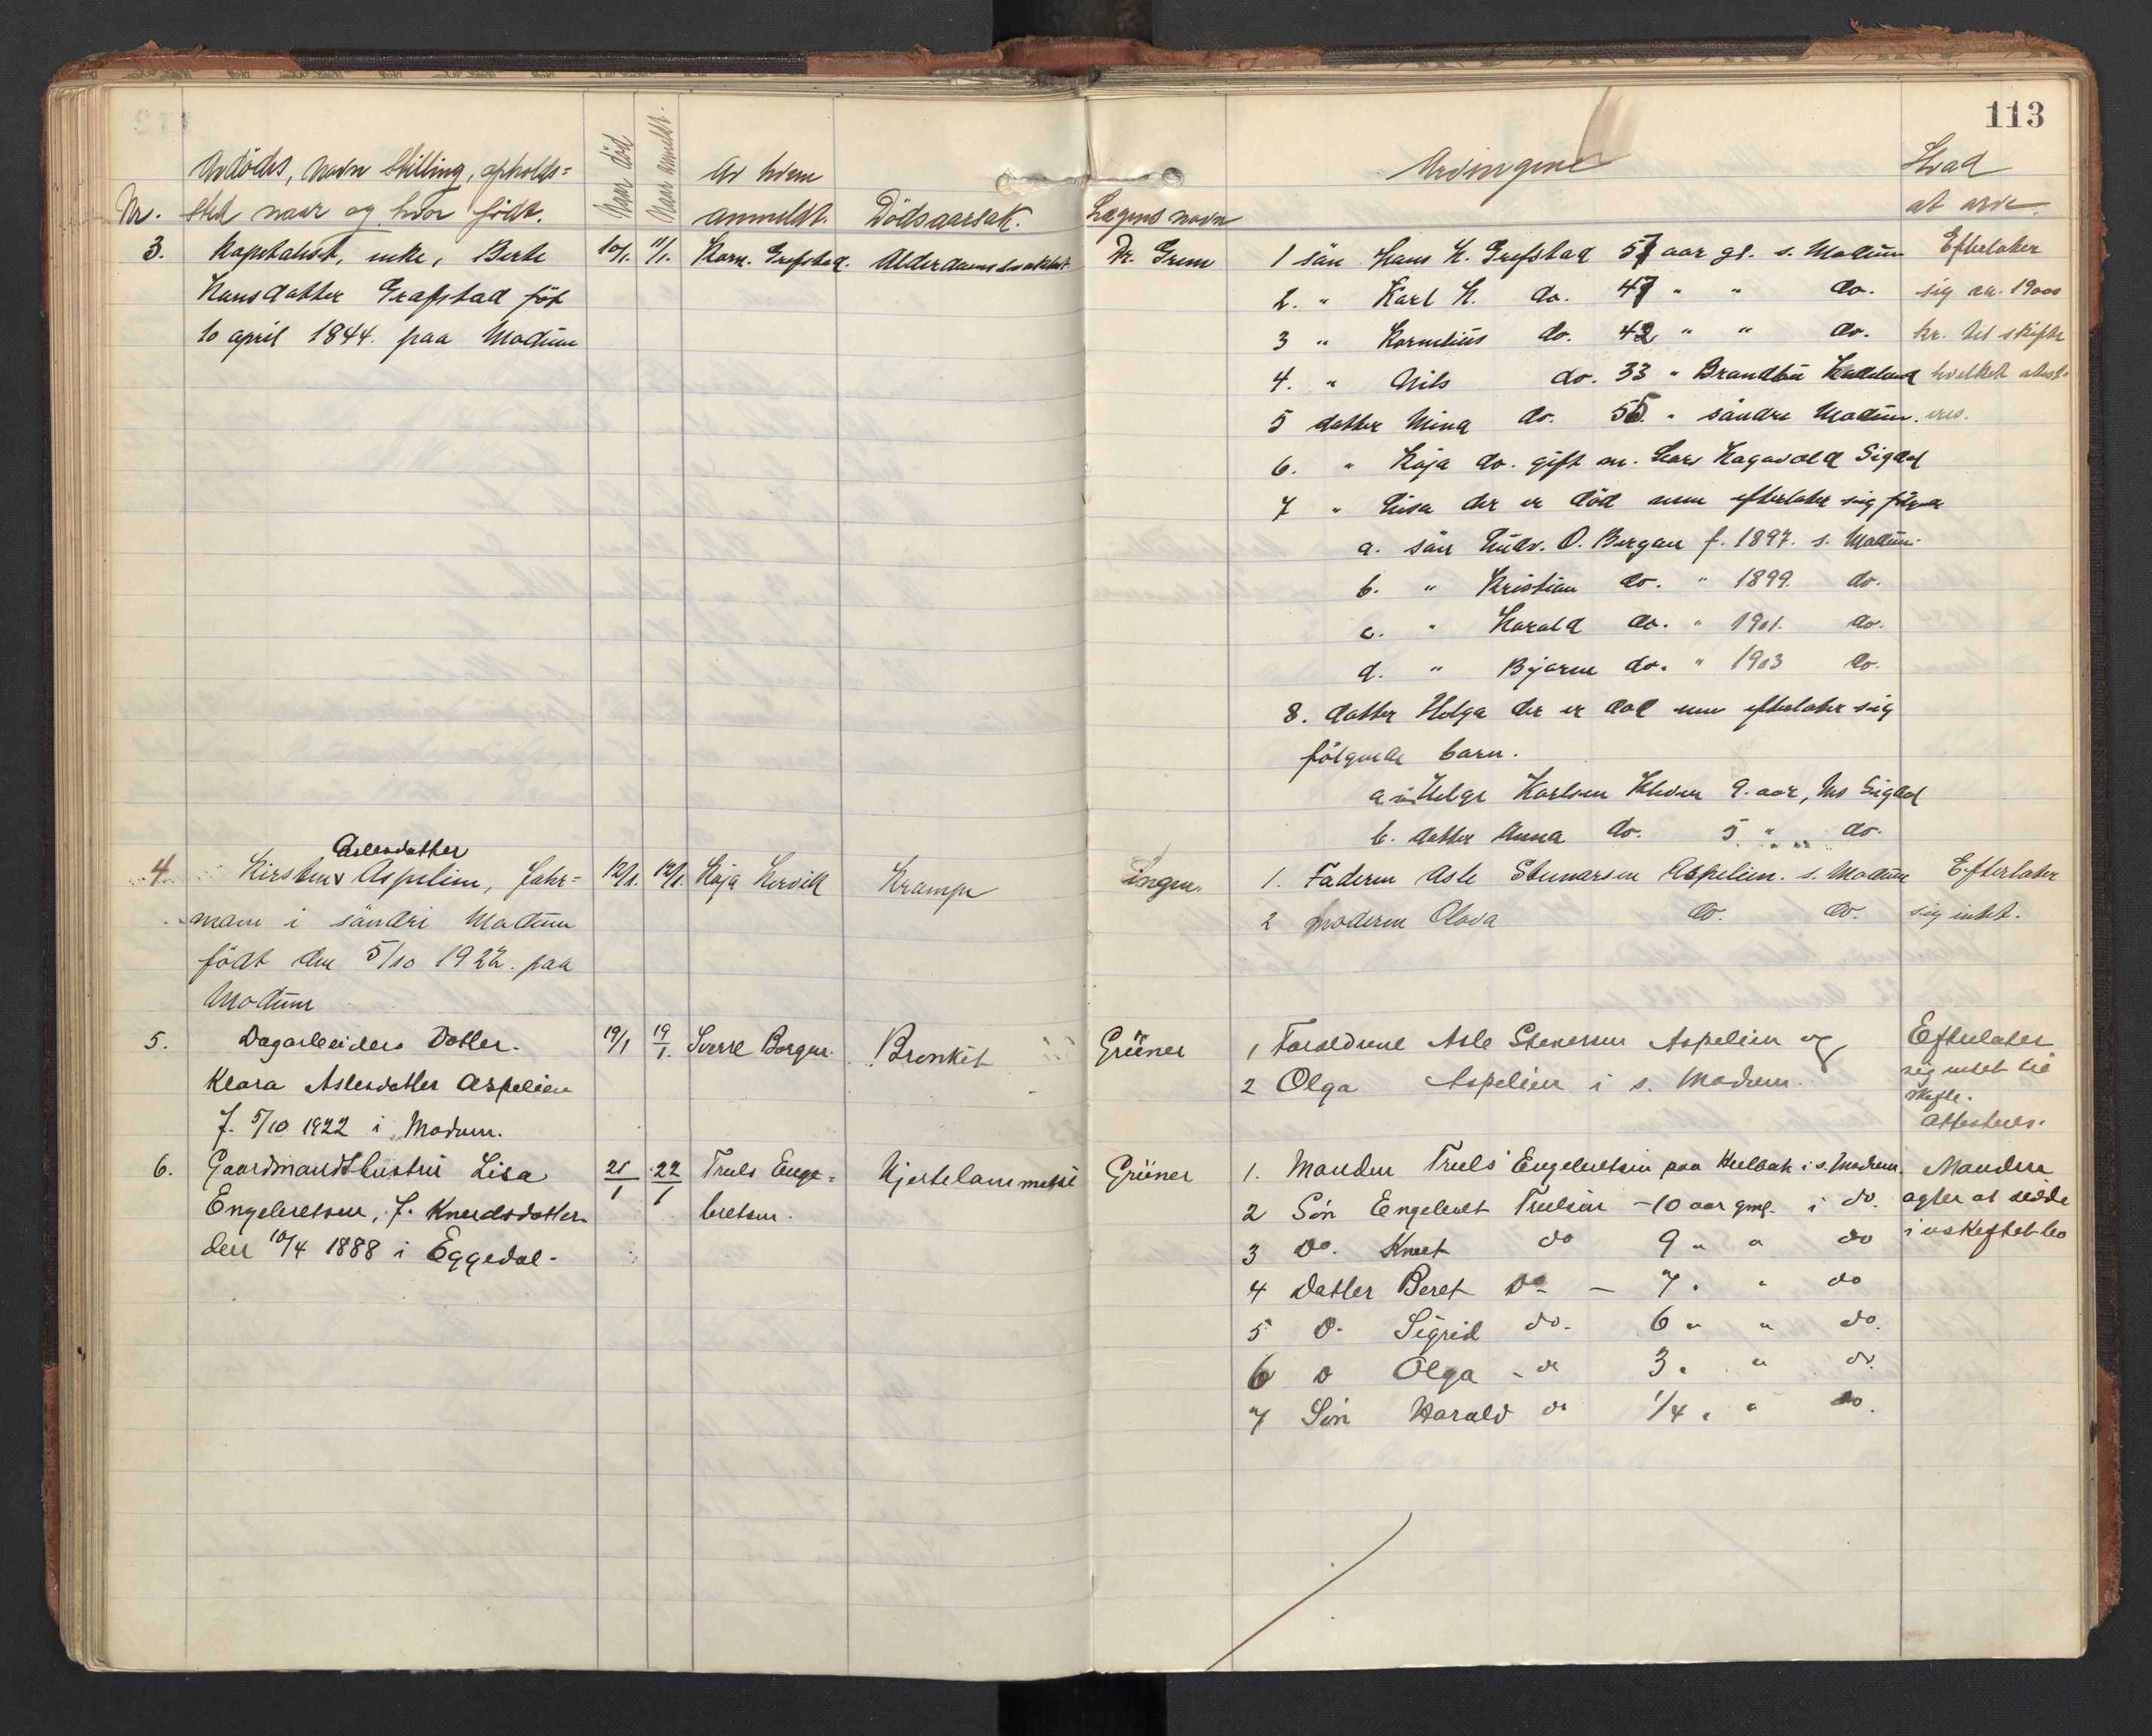 113
Avdödes, navn stilling, opholds=
Nr. sted naar og hvor födt.
Naar död
Naar anmeldt.
Av hvem
anmeldt.
Dödsaarsak.
Lægens navn
Arvingene
Hvad
at arve
3. Kapitalist, enke, Berte
Hansdatter Grefstad föt
10 april 1844. paa Modum
10/1. 11/1. Korn. Grefstad. Alderdomssvakhet
Dr. Grem
1 sön Hans H. Grefstad 57 aar gl. s. Modum
2. " Karl H. do. 47 " " do.
3 " Kornelius do. 42 " " do.
4. " Nils do. 33 " Brandbu Hadeland
5 datter Mina do. 55. " söndre Modum.
6. " Kaja do. gift m. Lars Hagavold Sigdal
7 " Lisa der er död men efterlater sig
a. sön Gudv. O. Bergan f. 1897. s. Modum.
b. " Kristian do. " 1899. do.
c. " Harald do. " 1901. do.
d. " Bjarne do. " 1903 do.
8. datter Helga der er död men efterlater sig
fölgende barn.
a. sön Helge Karlsen 9. aar, Sigdal
b. datter Anna do. 5 " " do.
Efterlater
sig ca. 19000
kr. til skifte
hvilket atest=
eres.
Aslesdatter
4. Kirsten v Aspelien,
i söndre Modum
födt den 5/10 1922. paa
Modum
12/1. 12/1. Kaja Krampe
Ingen.
1. Faderen Asle Stenarsen Aspelien. s. Modum
2 Moderen Olava do. do.
Efterlater
sig intet.
5. Dagarbeiders Datter.
Klara Aslesdatter Aspelien
f. 5/10 1922 i Modum.
19/1 19/1. Sverre Borgen. Bronkit
Grüner
1 Foreldrene Asle Stenersen Aspelien og
2 Olga Aspelien i s. Modum.
Efterlater
sig intet til
skifte.
Attesteres.
6. Gaardmandshustru Lisa
Engebretsen, f. Knudsdatter
den 10/4 1888 i Eggedal.
21/1 22/1 Truls Enge=
bretsen.
Hjertelammelse
Grüner
1. Manden Truls Engebretsen paa i s. Modum.
2 Sön Engebret Trulsen - 10 aar gml. i do.
3 Do. Knut do 9 " " do
4 Datter Beret Do - 7 " " do
5 D. Sigrid do. 6 " " do.
6 D Olga - do 3 " " do.
7 Sön Harald do 1/4 " " do.
Manden
agter at sidde
i uskiftet bo